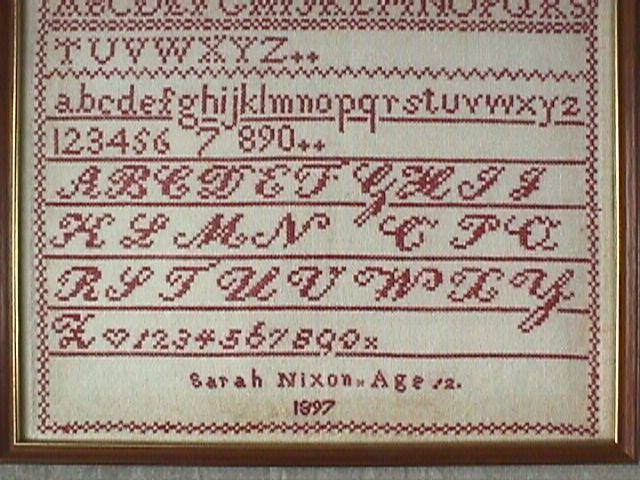 ABCDEFGHIJKLMNOPQRS
TUVWXYZ
abcdefghijklmnopqrstuvwxyz
123456 7 890
ABCDEFGHIJ
KLMN OPQ
RSTUVWXY
Z♡1234567890x
Sarah Nixon x Age 12.
1897